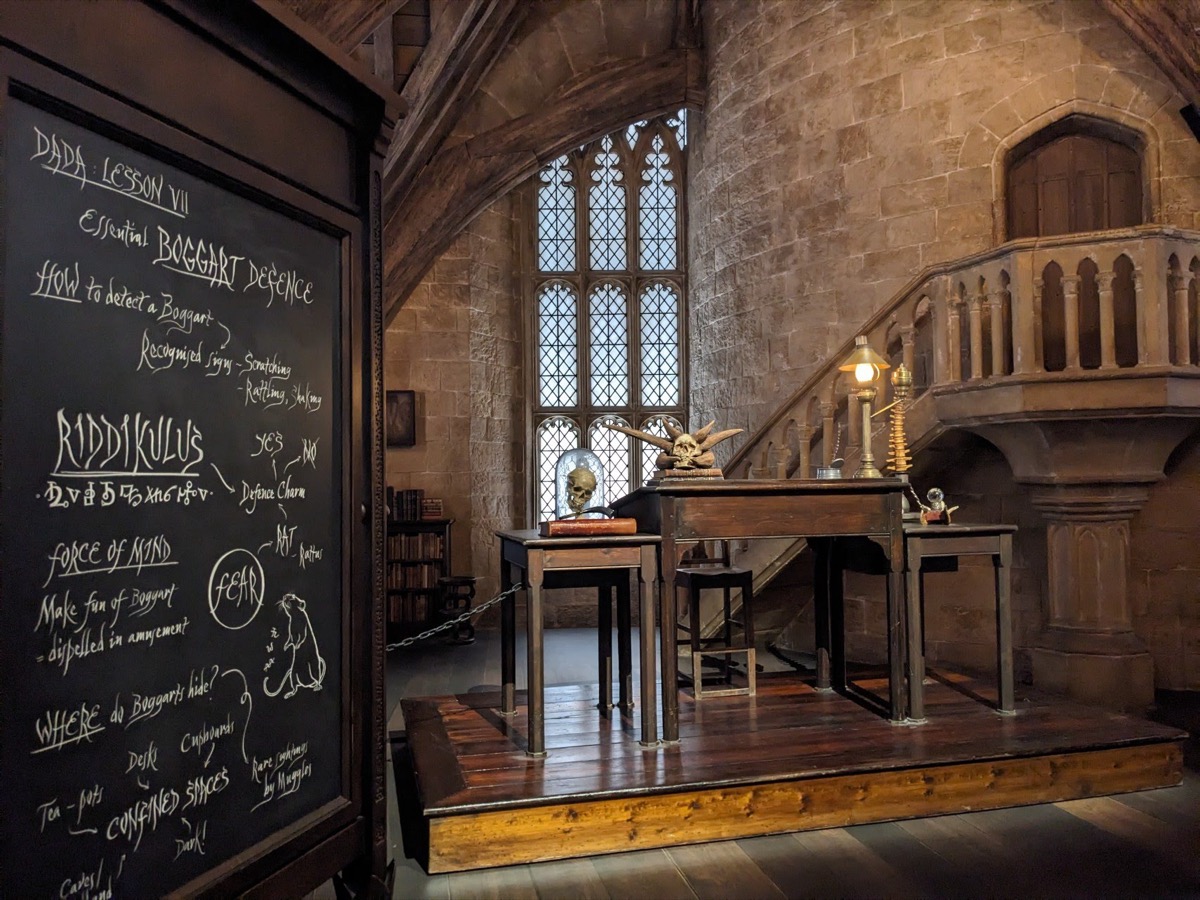 DADA : LESSON VII
Essential BOGGART DEFENCE
HOW to detect a Boggart
Recognised signs - Scratching
- Rattling, Shaking
RIDDIKULUS
YES
NO
Defence Charm
FORCE OF MIND
RAT
Rattus
FEAR
Make fun of Boggart
= dispelled in amusement
WHERE do Boggarts hide?
Desks
Cupboards
Rare sightings
by Muggles
Tea-pots
CONFINED SPACES
Dark!
Caves/